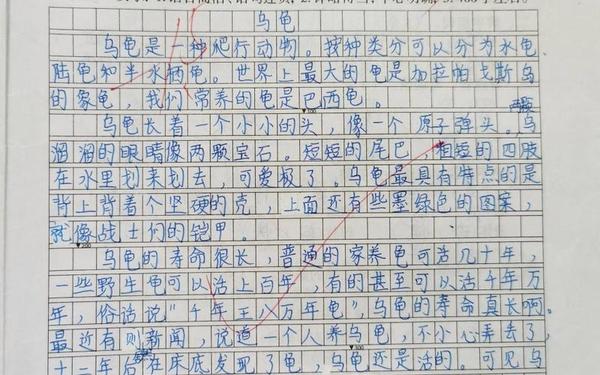 乌龟
乌龟是一种爬行动物。按种类分可以分为水龟、
陆龟和半水栖龟。世界上最大的龟是加拉帕戈斯岛
的象龟，我们常养的龟是巴西龟。
乌龟长着一个小小的头，像一个原子弹头。两颗乌
溜溜的眼睛像两颗宝石。短短的尾巴，粗短的四肢
在水里划来划去，可爱极了。乌龟最具有特点的是
背上背着个坚硬的壳，上面还有些墨绿色的图案，
就像战士们的铠甲。
乌龟的寿命很长，普通的家养龟可活几十年，
一些野生龟可以活上百年，有的甚至可以活千年万
年，俗话说"千年王八万年龟"，乌龟的寿命真长啊。
最近有则新闻，说道一个人养乌龟，不小心弄丢了，
十二年后在床底发现了龟，乌龟还是活的。可见乌